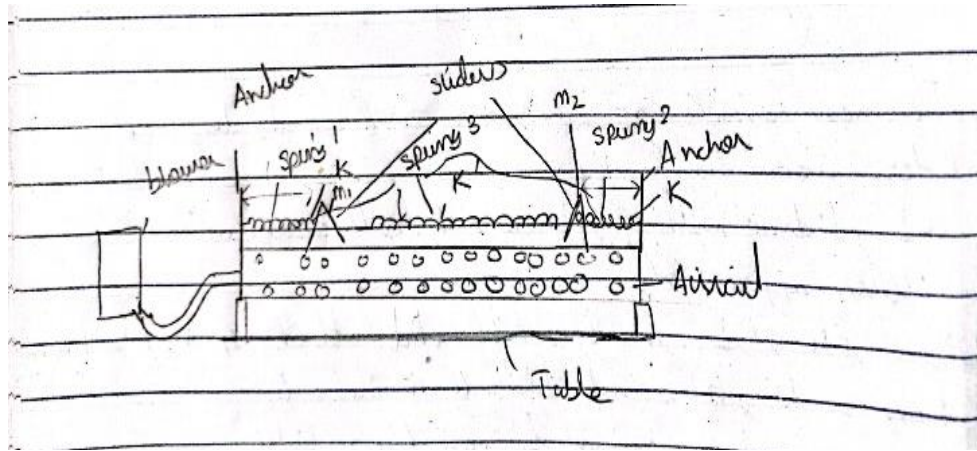 Anchor
sliders
m2
spring 2
Anchor
blower
spring 1
K
spring 3
K
K
m1
Table